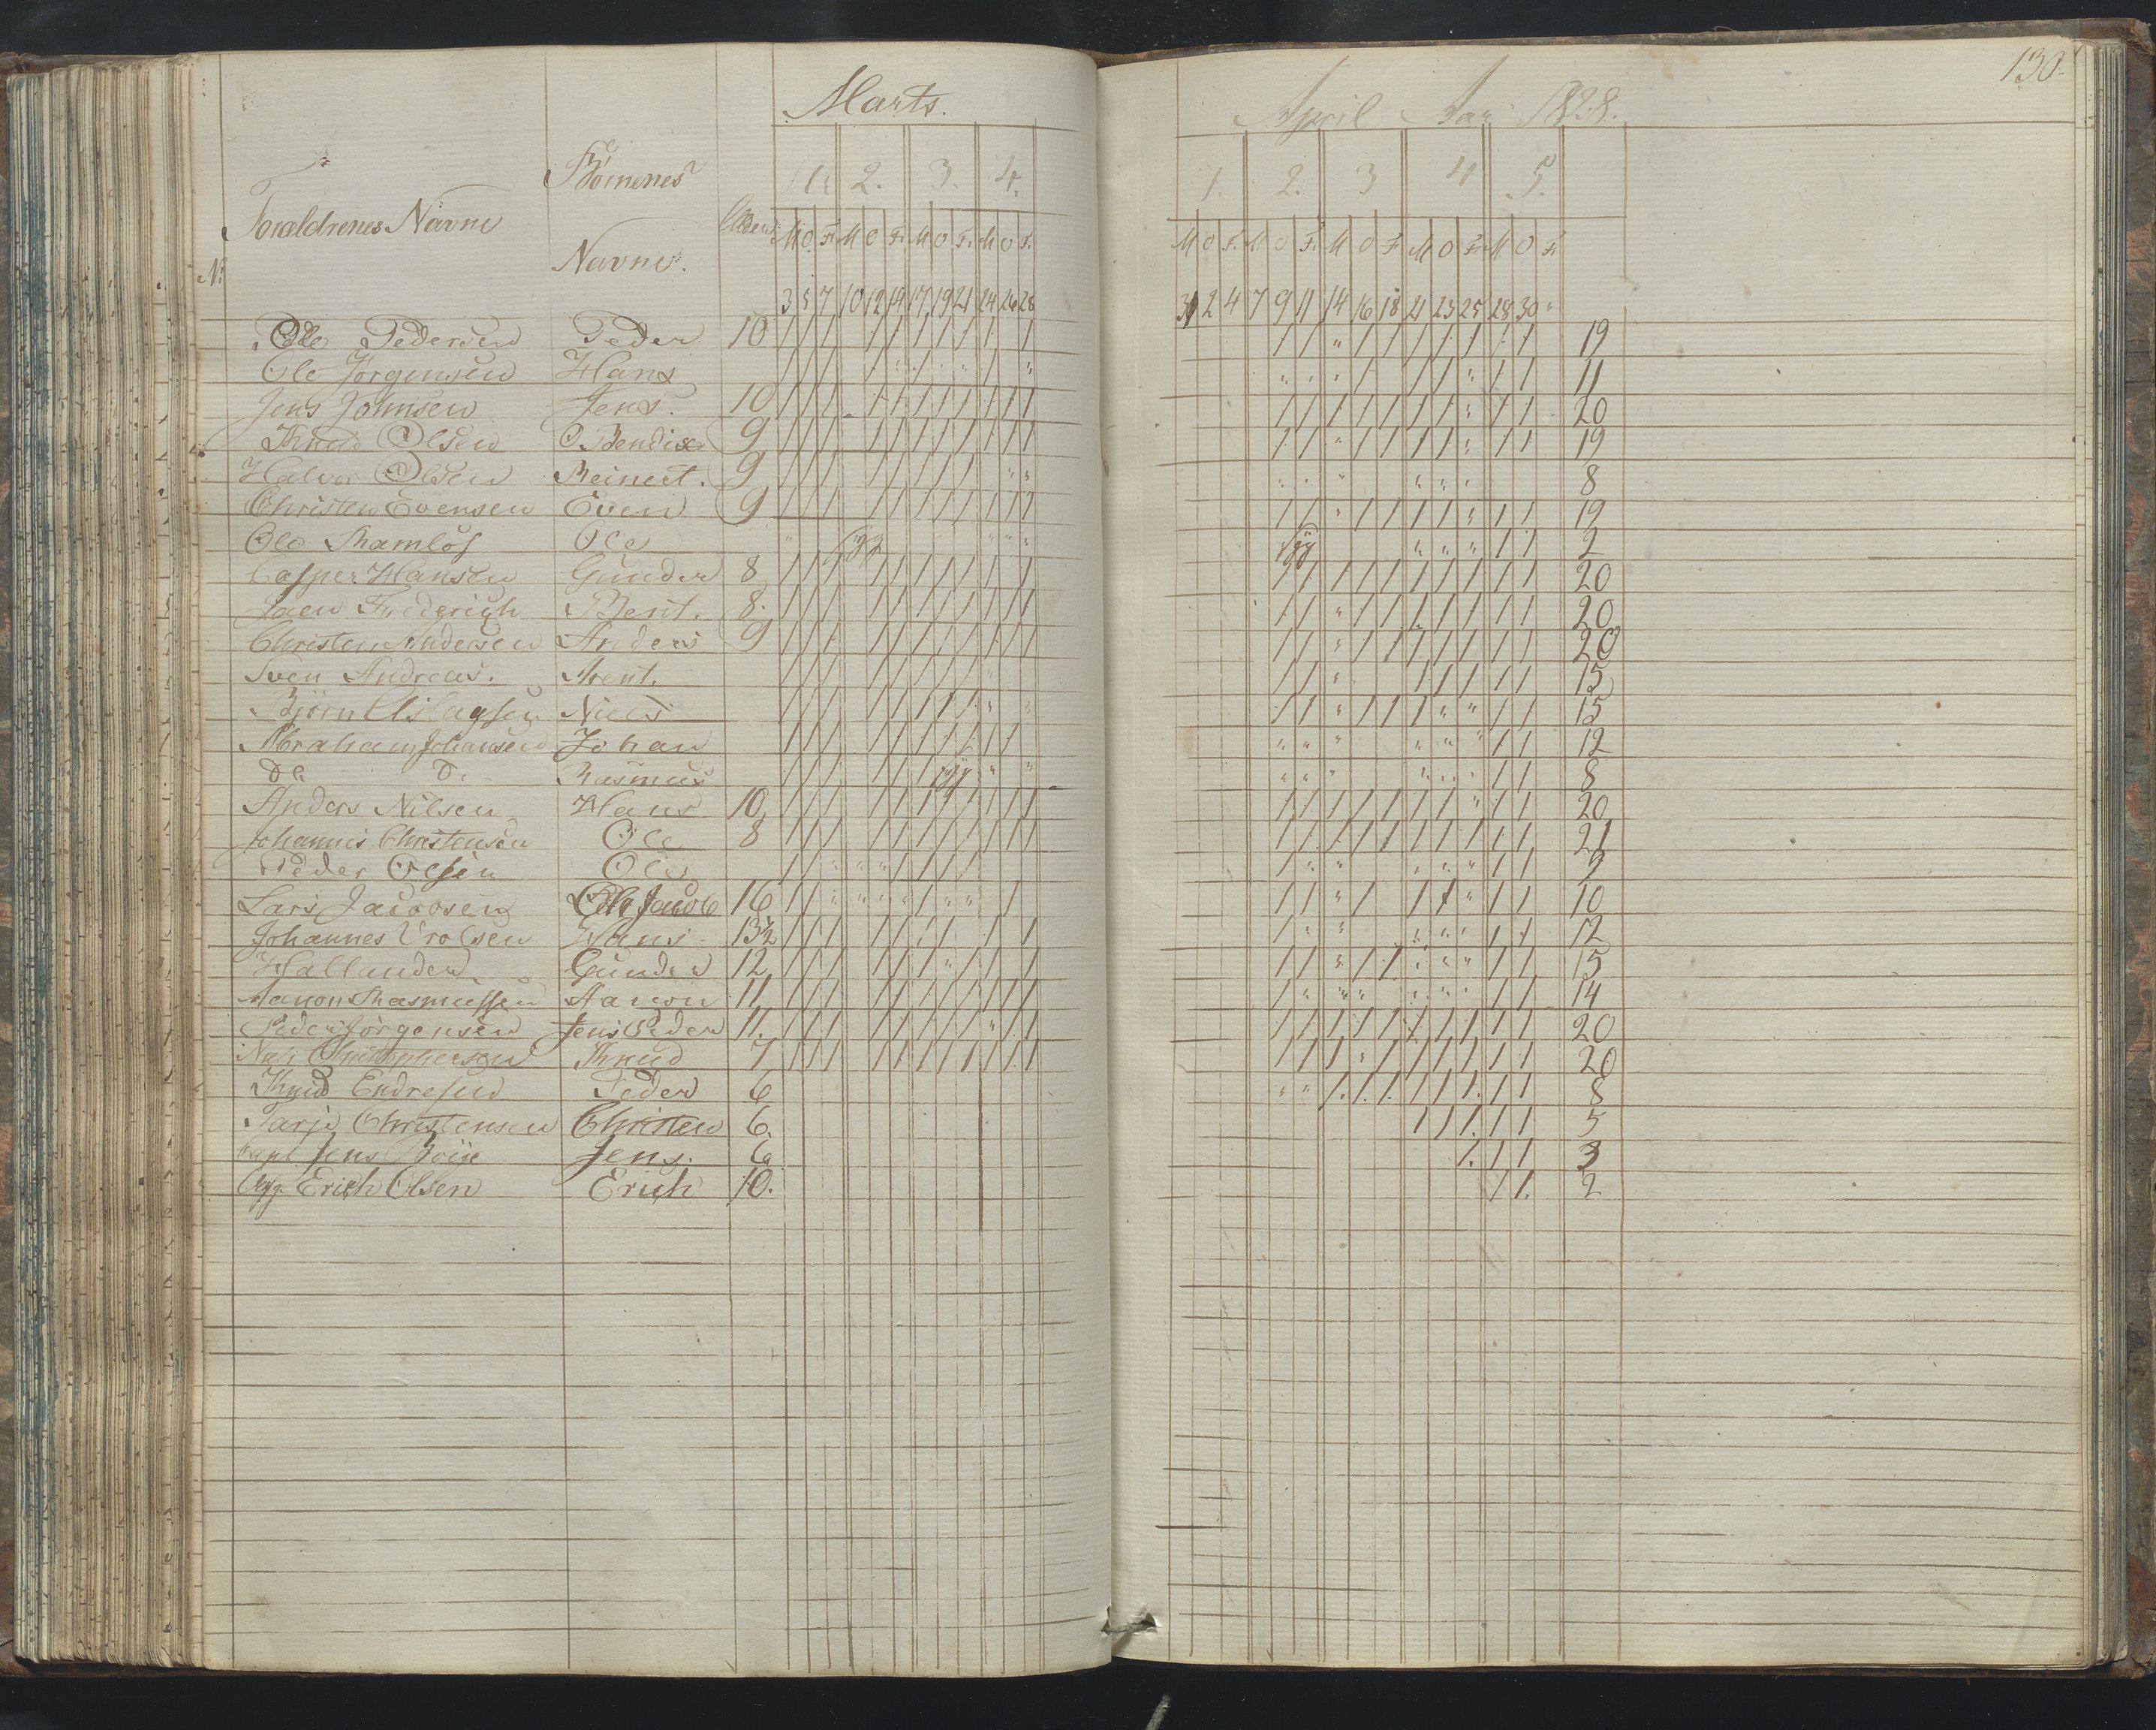 130.
Marts.
April Aar 1828.
Börnenes
1. 2. 3. 4.
1. 2. 3 4 5.
Foraldrenes Navne
Navne.
Alderen
M O. Fr. M O Fr. M O Fr. M O Fr.
M O F. M O F. M O F. M O Fr. M. O Fr
N:
3 5 7 10 12 14 17 19 21 24 26 28
31 2 4 7 9 11 14 16 18 21 23 25 28 30 "
Ole Pedersen Peder 10 19
Ole Jörgensen Hans 11
Jens Johnsen Jens. 10 20
Knud Olsen O. Bendix 9 19
Halvor Olsen Reinert. 9 8
Christen Evensen Even 9 19
Ole Skamlös Ole syg syg 2
Casper Hansen Gunder 8 20
Faen Friderich Bent. 8. 20
Christen Andersen Anders 9 20
Sven Andreas. Arent. 15
Björn Aslagsen Niels 15
Abraham Johansen Johan 12
Do Do Rasmus syg 8
Anders Nilsen Hans 10 20
Johannes Christensen Ole 8 21
Peder Olsen Ole 9
Lars Jacobsen Ole Jacob 16 10
Johannes Trolsen Hans 13½ 12
Hallander Gunder 12 15
Aanon Rasmussen Aanon 11 14
Peder Jörgensen Jens Peder 11. 20
Nils Christophersen Knud 7 20
Knud Endresen Peder 6 8
Tarje Christensen Christen 6. 5
Capt Jens Böije Jens. 6 3
Erich Olsen Erich 10. 2